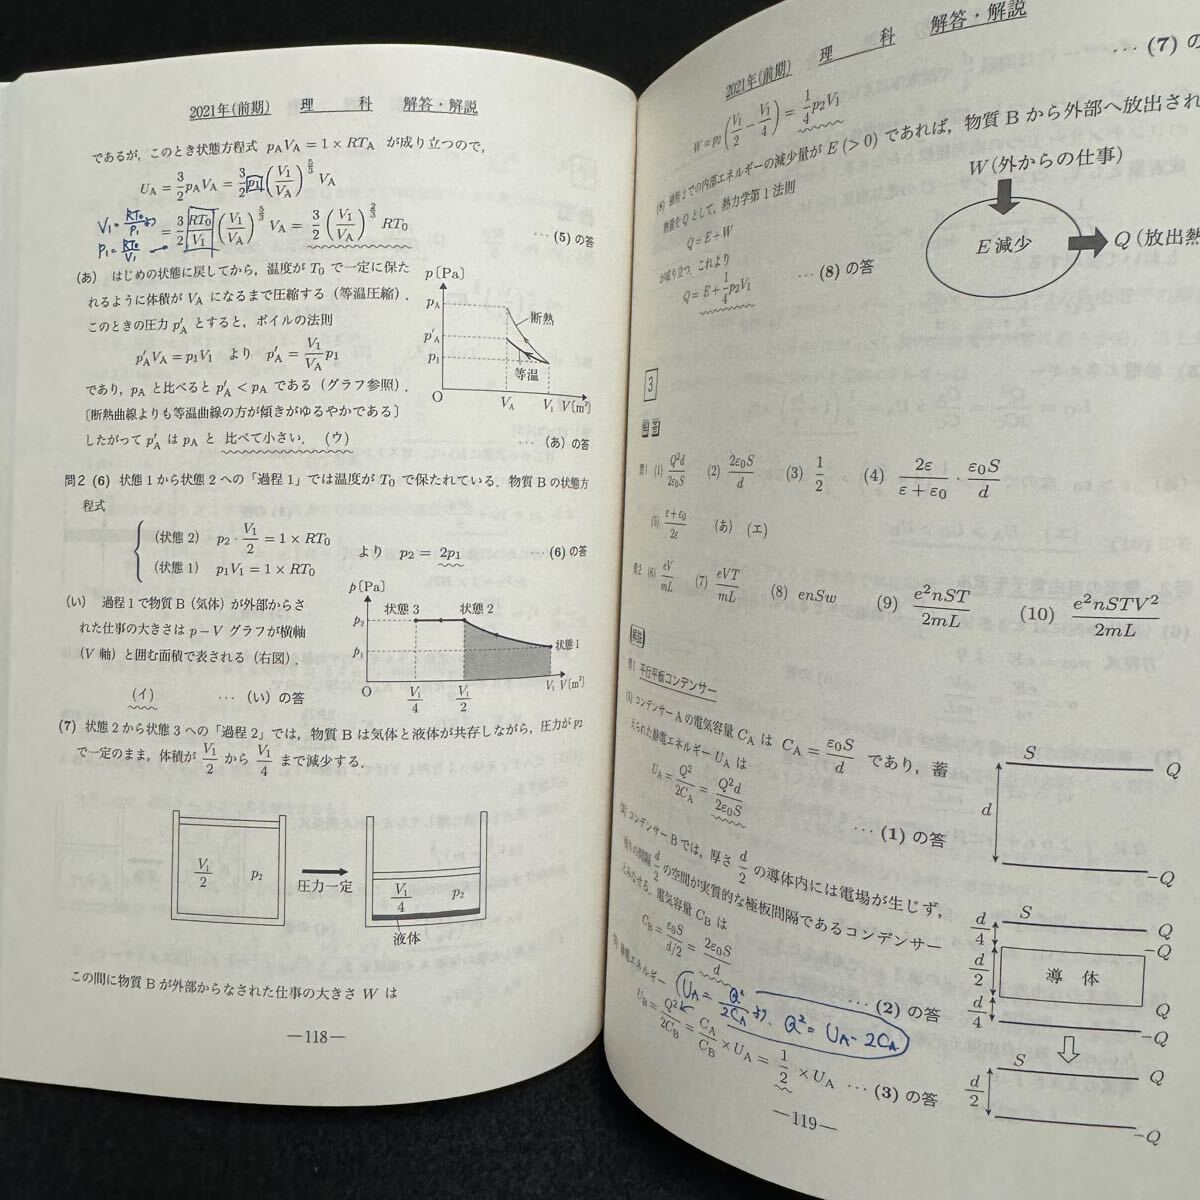 2021年(前期) 理 科 解答・解説
であるが，このとき状態方程式 pAVA＝1×RTA が成り立つので，
UA＝3/2 pAVA＝3/2 p1(V1/VA)^5/3 VA
V1＝RT0/P1 より
P1＝RT0/V1
＝3/2 RT0/V1 (V1/VA)^5/3 VA＝3/2 (V1/VA)^2/3 RT0
… (5)の答
(あ) はじめの状態に戻してから，温度が T0 で一定に保た
れるように体積が VA になるまで圧縮する（等温圧縮）．
このときの圧力 p′A とすると，ボイルの法則
p′AVA＝p1V1 より p′A＝V1/VA p1
であり，pA と比べると p′A＜pA である（グラフ参照）．
〔断熱曲線よりも等温曲線の方が傾きがゆるやかである〕
したがって p′A は pA と 比べて小さい．(ウ)
… (あ)の答
p[Pa]
pA
p′A
p1
断熱
等温
O
VA
V1
V[m³]
問2 (6) 状態1から状態2への「過程1」では温度が T0 で保たれている．物質Bの状態方
程式
(状態2) p2・V1/2＝1×RT0
(状態1) p1V1＝1×RT0
より p2＝2p1
… (6)の答
(い) 過程1で物質B（気体）が外部からさ
れた仕事の大きさは p－V グラフが横軸
(V軸）と囲む面積で表される（右図）．
(イ) … (い)の答
p[Pa]
状態3
状態2
状態1
p2
p1
O
V1/4
V1/2
V1
V[m³]
(7) 状態2から状態3への「過程2」では，物質Bは気体と液体が共存しながら，圧力が p2
で一定のまま，体積が V1/2 から V1/4 まで減少する．
V1/2
p2
圧力一定
V1/4
p2
液体
この間に物質Bが外部からなされた仕事の大きさ W は
—118—
2021年(前期) 理 科 解答・解説
W＝p2(V1/2－V1/4)＝1/4 p2V1
… (7)の
(8) 過程2での内部エネルギーの減少量が E(＞0) であれば，物質Bから外部へ放出され
熱量を Q として，熱力学第1法則
Q＝E＋W
が成り立つ．これより
Q＝E＋1/4 p2V1
… (8)の答
W(外からの仕事)
E減少
Q(放出熱
3
解答
問1 (1) Q²d/2ε0S (2) 2ε0S/d (3) 1/2 (4) 2ε/ε＋ε0・ε0S/d
(5) ε＋ε0/2ε (あ) (エ)
問2 (6) eV/mL (7) eVT/mL (8) enSw (9) e²nST/2mL (10) e²nSTV²/2mL
解説
問1 平行平板コンデンサー
(1) コンデンサーAの電気容量 CA は CA＝ε0S/d であり，蓄
えられた静電エネルギー UA は
UA＝Q²/2CA＝Q²d/2ε0S
… (1)の答
S
Q
d
－Q
(2) コンデンサーBでは，厚さ d/2 の導体内には電場が生じず，
残りの間隔 d/2 の空間が実質的な極板間隔であるコンデンサー
とみなせる．電気容量 CB は
CB＝ε0S/d/2＝2ε0S/d
… (2)の答
(3) 静電エネルギー
UA＝Q²/2CA より．Q²＝UA・2CA
UB＝Q²/2CB＝CA/CB×UA＝1/2×UA
… (3)の答
S
Q
d/4
－Q
d/2
導 体
Q
d/4
－Q
S
Q
d/2
－Q
—119—